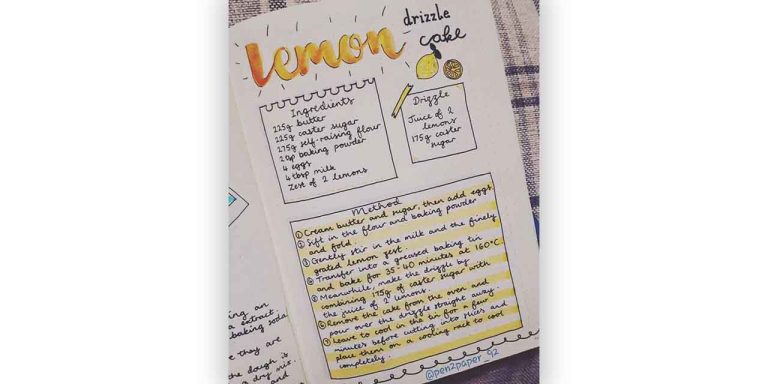 lemon drizzle
cake
Ingredients
225g butter
225g caster sugar
275g self-raising flour
2tsp baking powder
4 eggs
4 tbsp milk
Zest of 2 lemons
Drizzle
Juice of 2
lemons
175g caster
sugar
Method
① Cream butter and sugar, then add eggs
② Sift in the flour and baking powder
and fold.
③ Gently stir in the milk and the finely
grated lemon zest.
④ Transfer into a greased baking tin
and bake for 35-40 minutes at 160°C.
⑤ Meanwhile, make the drizzle by
combining 175g of caster sugar with
the juice of 2 lemons.
⑥ Remove the cake from the oven and
pour over the drizzle straight away.
⑦ Leave to cool in the tin for a few
minutes before cutting into slices and
place them on a cooling rack to cool
completely.
@pen2paper_92
ing an
extract.
baking soda
they are
the dough is
dry mix.
and